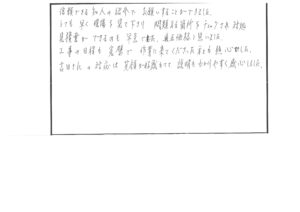 信頼がある知人の紹介で、お願いすることができました。
とても早く現場を見て下さり 問題ある箇所をチェックされ 対処
見積書ができるのも早急で 適正価格と思いました。
工事の日程も完璧で 作業に来てくださった方も 熱心でした。
吉田さんの対応は 笑顔が好感もてて 説明もわかりやすく 感心しました。